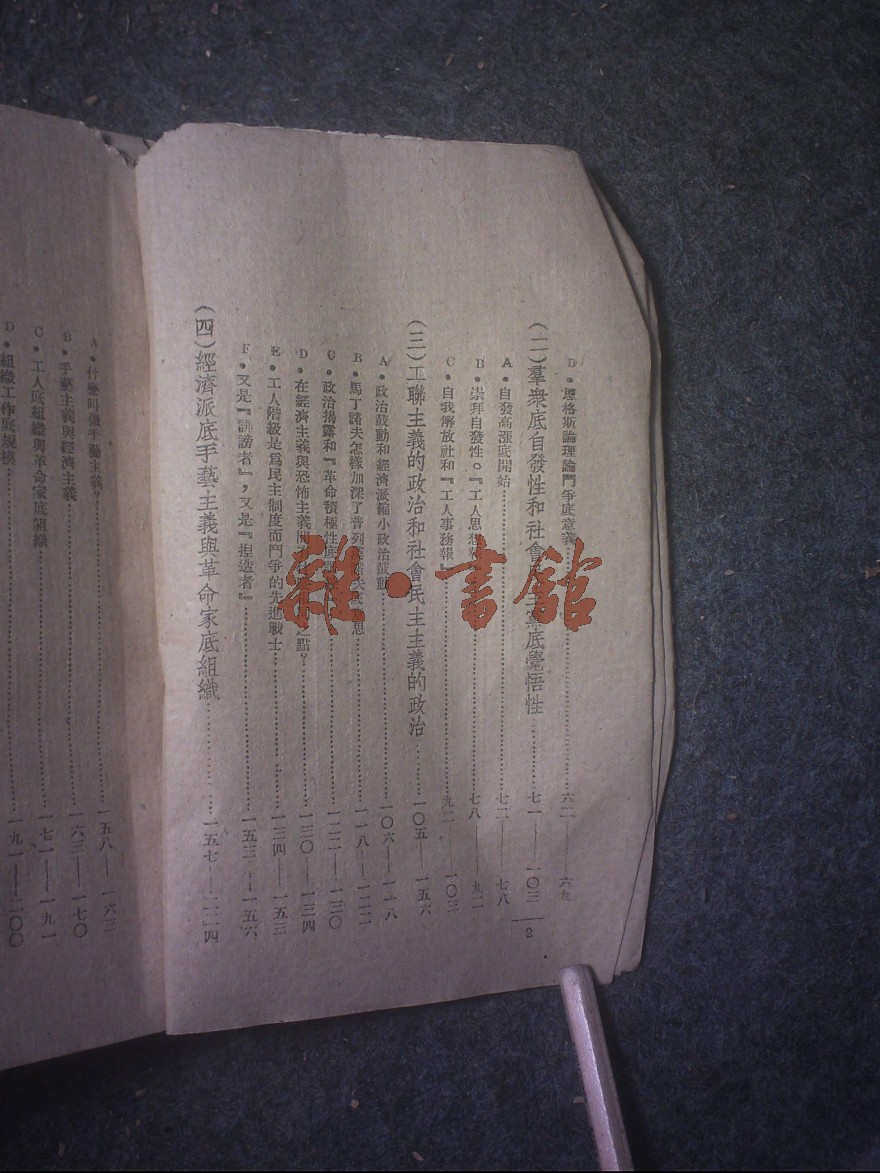 D・恩格斯論理論鬥爭底意義 六二——六九
(二)羣衆底自發性和社會民主黨底覺悟性 七一——一〇三
A・自發高漲底開始 七一——七八
B・崇拜自發性。『工人思想 七八——九二
C・自我解放社和『工人事務報』 九二——一〇三
(三)工聯主義的政治和社會民主主義的政治 一〇五——一五六
A・政治鼓動和經濟派縮小政治鼓動 一〇六——一一八
B・馬丁諾夫怎樣加深了普列漢諾夫底意思 一一八——一二二
C・政治揭露和『革命積極性底 一二二——一三〇
D・在經濟主義與恐怖主義間 之點? 一三〇——一三四
E・工人階級是爲民主制度而鬥爭的先進戰士 一三四——一五三
F・又是『誹謗者』,又是『揑造者』 一五三——一五六
(四)經濟派底手藝主義與革命家底組織 一五七——二二四
A・什麼叫做手藝主義? 一五八——一六三
B・手藝主義與經濟主義 一六三——一七〇
C・工人底組織與革命家底組織 一七一——一九一
D・組織工作底規模 一九一——二〇〇
2
雜・書館